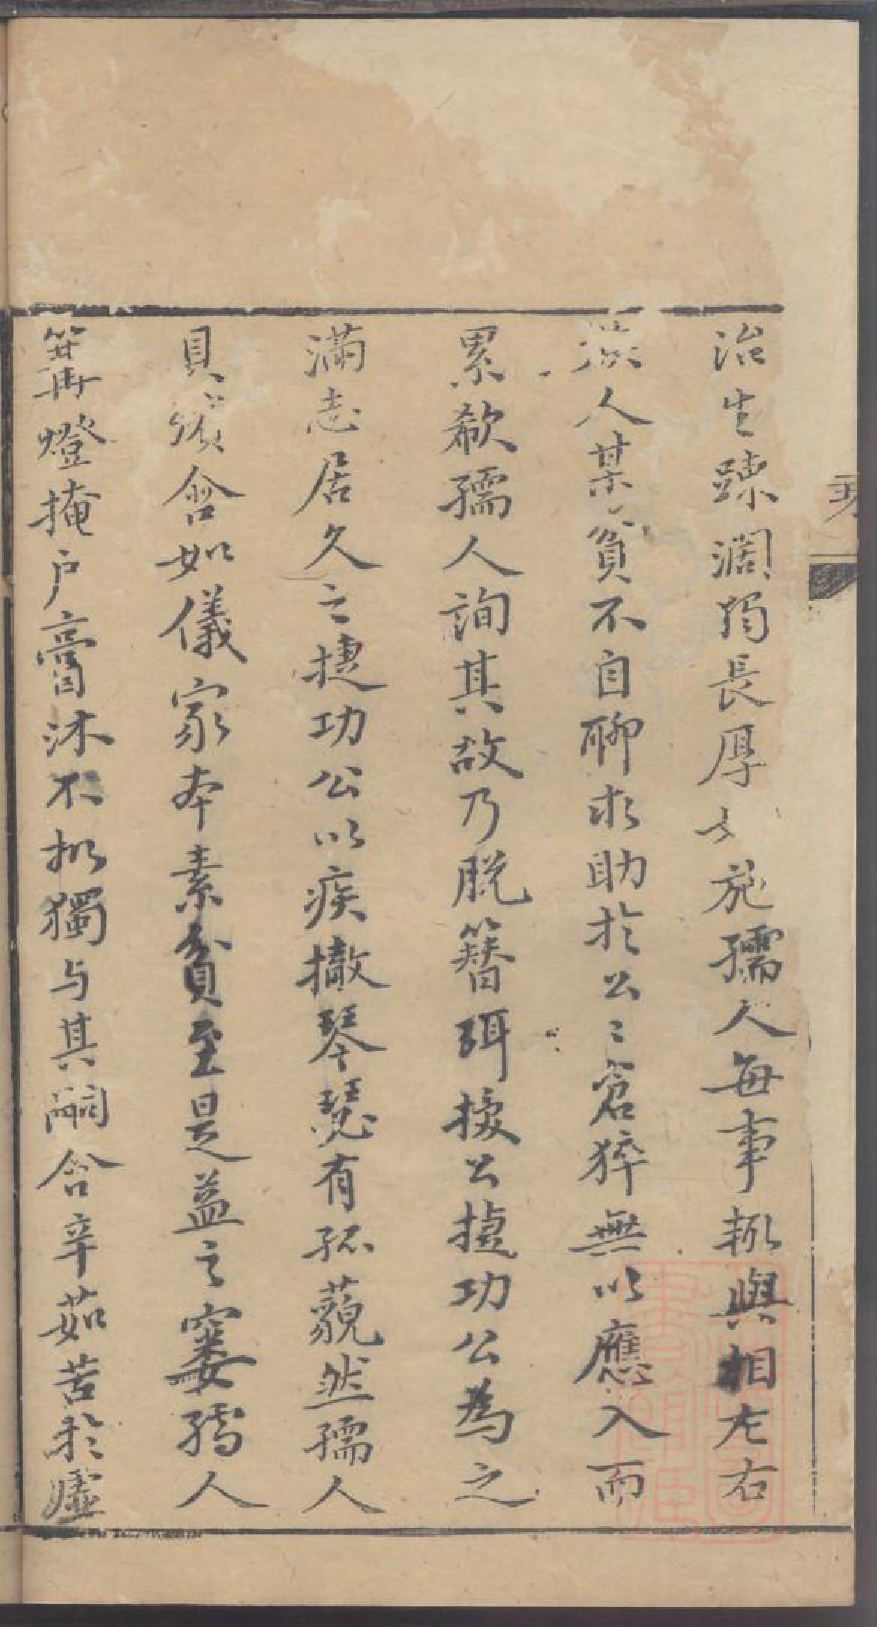 治生踈濶獨長厚 施孺人每事輙與相左右
人某貧不自聊求助於公〻倉猝無以應入而
累欷孺人詢其故乃脱簪珥授公捷功公為之
滿志居久之捷功公以疾撤琴瑟有孤藐然孺人
具 含如儀家本素貧至是益之窶孺人
篝燈掩户膏沐不 獨与其嗣含辛茹苦於虚